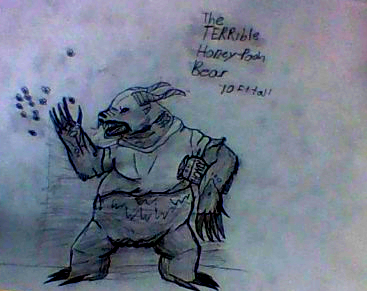 The
TERRible
Honey Pooh
Bear
10 Ft tall